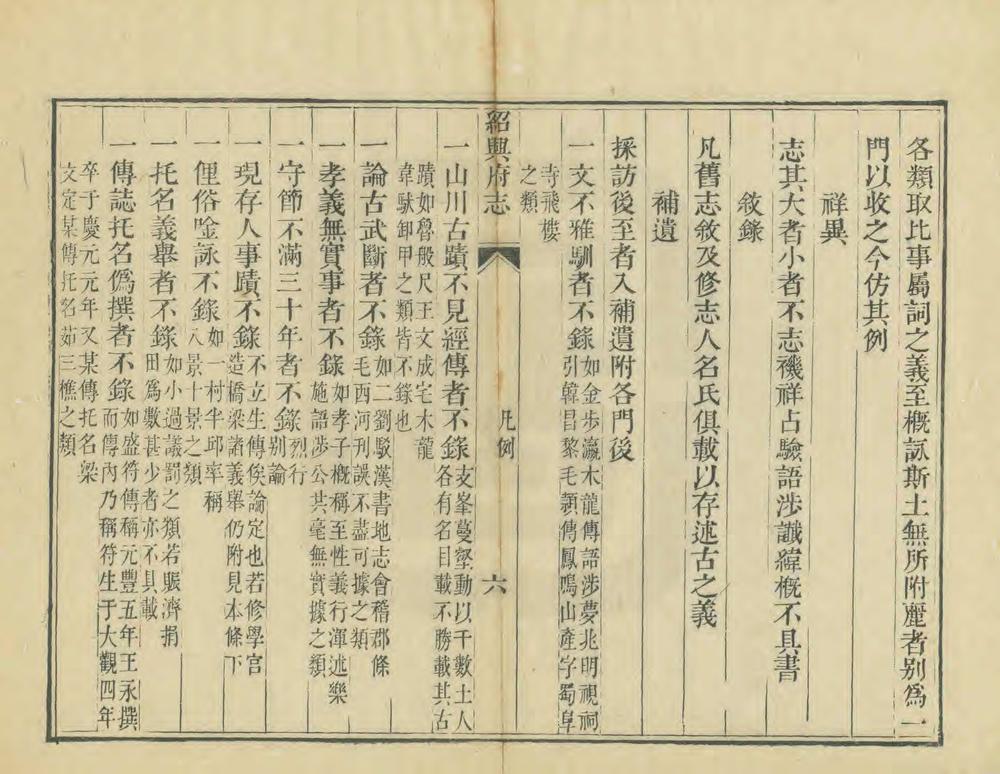 各類取比事屬詞之義至概詠斯土無所附麗者别爲一
門以收之今仿其例
祥異
志其大者小者不志禨祥占驗語涉讖緯概不具書
敘錄
凡舊志敘及修志人名氏俱載以存述古之義
補遺
採訪後至者入補遺附各門後
一文不雅馴者不錄
如金步瀛木龍傳語涉夢兆明視祠
引韓昌黎毛頴傳鳳鳴山產字蜀阜
寺飛樓
之類
紹興府志
凡例
六
一山川古蹟不見經傳者不錄
支峯蔓壑動以千數土人
各有名目載不勝載其古
蹟如魯般尺王文成宅木龍
韋馱卸甲之類皆不錄也
一論古武斷者不錄
如二劉駁漢書地志會稽郡條
毛西河刊誤不盡可據之類
一孝義無實事者不錄
如孝子概稱至性義行渾述樂
施語涉公共毫無實據之類
一守節不滿三十年者不錄
烈行
别論
一現存人事蹟不錄
不立生傳俟論定也若修學宮
造橋梁諸義舉仍附見本條下
一俚俗唫詠不錄
如一村半邱率稱
八景十景之類
一托名義舉者不錄
如小過議罰之類若賑濟捐
田爲數甚少者亦不具載
一傳誌托名僞撰者不錄
如盛符傳稱元豐五年王永撰
而傳內乃稱符生于大觀四年
卒于慶元元年又某傳托名梁
文定某傳托名茹三樵之類